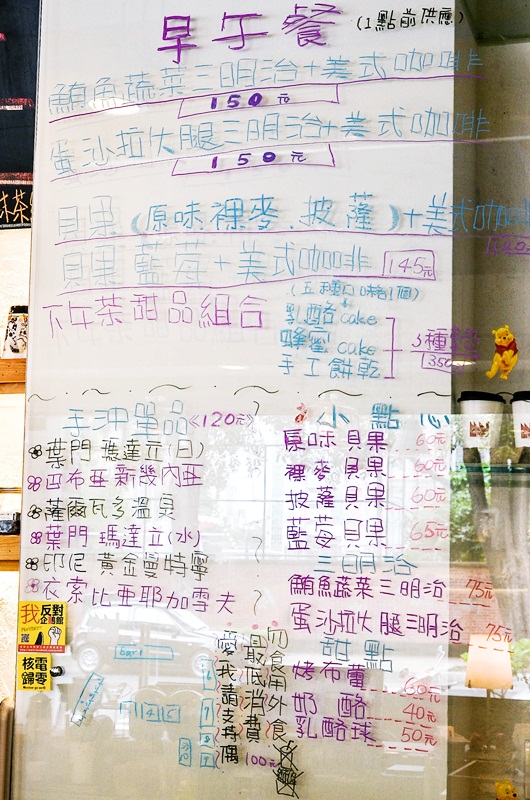 早午餐 (1點前供應)
鮪魚蔬菜三明治+美式咖啡
150元
蛋沙拉火腿三明治+美式咖啡
150元
貝果(原味.裸麥.披薩)+美式咖啡
貝果藍莓+美式咖啡 145元
下午茶甜品組合
(五種口味各1個)
乳酪cake
蜂蜜cake
手工餅乾
3種
350元
手沖單品《120元》
葉門瑪達立(日)
四布亞新幾內亞
薩爾瓦多溫泉
葉門瑪達立(水)
印尼黃金曼特寧
衣索比亞耶加雪夫
小點心
原味貝果 60元
裸麥貝果 60元
披薩貝果 60元
藍莓貝果 65元
三明治
鮪魚蔬菜三明治 75元
蛋沙拉火腿三明治 75元
甜點
烤布蕾 60元
奶酪 40元
乳酪球 50元
愛我請支持偶
最低消費100元
禁食外食
bar
我反對
核電歸零